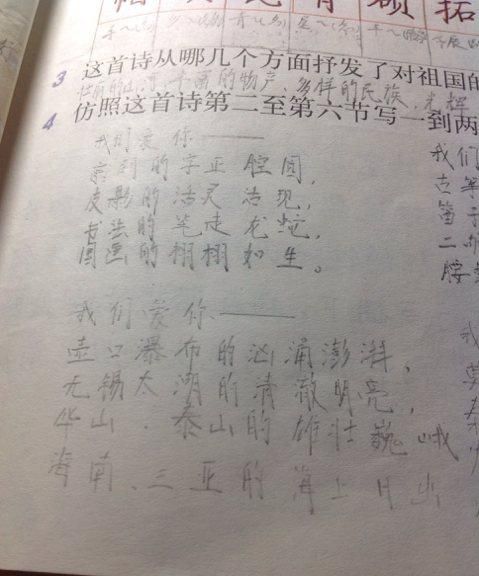 3 这首诗从哪几个方面抒发了对祖国的
丰富的物产、多样的民族、光辉
4 仿照这首诗第二至第六节写一到两
我们爱你——
京剧的字正腔圆，
皮影的活灵活现，
书法的笔走龙蛇，
国画的栩栩如生。
我们爱你——
壶口瀑布的汹涌澎湃，
无锡太湖的清澈明亮，
华山、泰山的雄壮巍峨
海南、三亚的海上日出
我们
古筝
笛子
二胡
腰
我